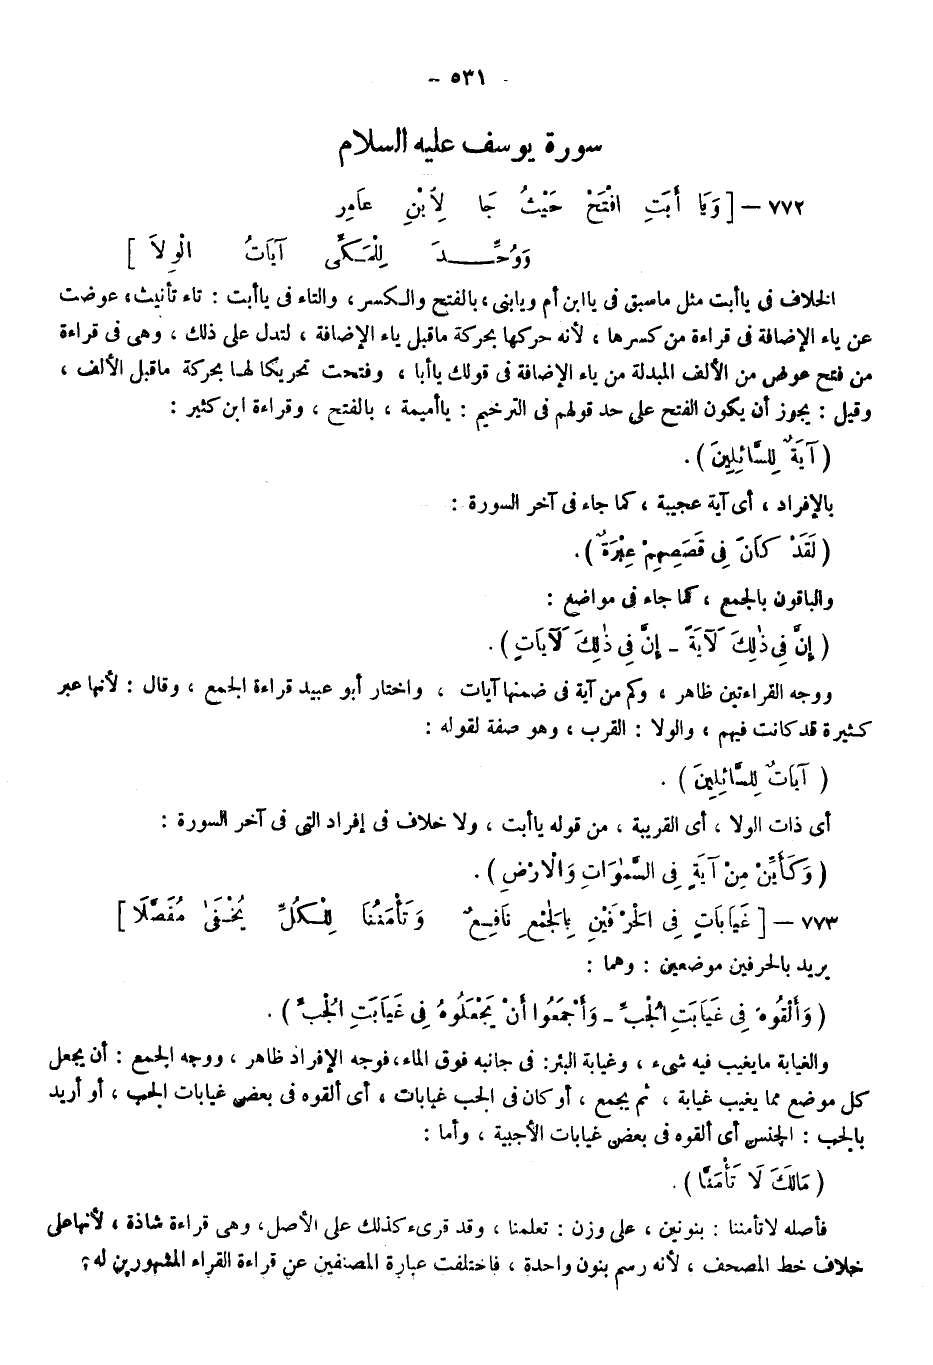 – ٥٣١ –
سورة يوسف عليه السلام
٧٧٢ – [ وَيَا أَبَتِ افْتَحْ حَيْثُ جَا لِأَبْنِ عَامِرِ
وَوُحِّـــدَ لِلْمَكِّى آيَاتُ الْوِلاَ ]
الخلاف فى ياأبت مثل ماسبق فى ياابن أم ويابنى، بالفتح والكسر، والتاء فى ياأبت : تاء تأنيث، عوضت
عن ياء الإضافة فى قراءة من كسرها ، لأنه حركها بحركة ماقبل ياء الإضافة ، لتدل على ذلك ، وهى فى قراءة
من فتح عوض من الألف المبدلة من ياء الإضافة فى قولك ياأبا ، وفتحت تحريكا لها بحركة ماقبل الألف ،
وقيل : يجوز أن يكون الفتح على حد قولهم فى الترخيم : ياأميمة ، بالفتح ، وقراءة ابن كثير :
( آيَةٌ لِلسَّائِلِينَ ) .
بالإفراد ، أى آية عجيبة ، كما جاء فى آخر السورة :
( لَقَدْ كَانَ فِى قَصَصِهِمْ عِبْرَةٌ ) .
والباقون بالجمع ، كما جاء فى مواضع :
( إِنَّ فِى ذٰلِكَ لَآيَةً – إِنَّ فِى ذٰلِكَ لَآيَاتٍ ) .
ووجه القراءتين ظاهر ، وكم من آية فى ضمنها آيات ، واختار أبو عبيد قراءة الجمع ، وقال : لأنها عبر
كثيرة قد كانت فيهم ، والولا : القرب ، وهو صفة لقوله :
( آيَاتٌ لِلسَّائِلِينَ ) .
أى ذات الولا ، أى القريبة ، من قوله ياأبت ، ولا خلاف فى إفراد التى فى آخر السورة :
( وَكَأَيِّنْ مِنْ آيَةٍ فِى السَّمٰوَاتِ وَالْارْضِ ) .
٧٧٣ – [ غَيَابَاتِ فِى الْحَرْفَيْنِ بِالْجَمْعِ نَافِعٌ وَتَأْمَنُنَا لِلْكُلِّ يُخْفَىٰ مُفَصَّلَا ]
يريد بالحرفين موضعين : وهما :
( وَأَلْقُوهُ فِى غَيَابَتِ الْجُبِّ – وَأَجْمَعُوا أَنْ يَجْعَلُوهُ فِى غَيَابَتِ الْجُبِّ ) .
والغيابة مايغيب فيه شىء ، وغيابة البئر: فى جانبه فوق الماء، فوجه الإفراد ظاهر ، ووجه الجمع : أن يجعل
كل موضع مما يغيب غيابة ، ثم يجمع ، أو كان فى الجب غيابات ، أى ألقوه فى بعض غيابات الجب ، أو أريد
بالجب : الجنس أى ألقوه فى بعض غيابات الأجبية ، وأما :
( مَالَكَ لَا تَأْمَنَّا ) .
فأصله لاتأمننا : بنونين ، على وزن : تعلمنا ، وقد قرىء كذلك على الأصل، وهى قراءة شاذة ، لأنها على
خلاف خط المصحف ، لأنه رسم بنون واحدة ، فاختلفت عبارة المصنفين عن قراءة القراء المشهورين له ؟